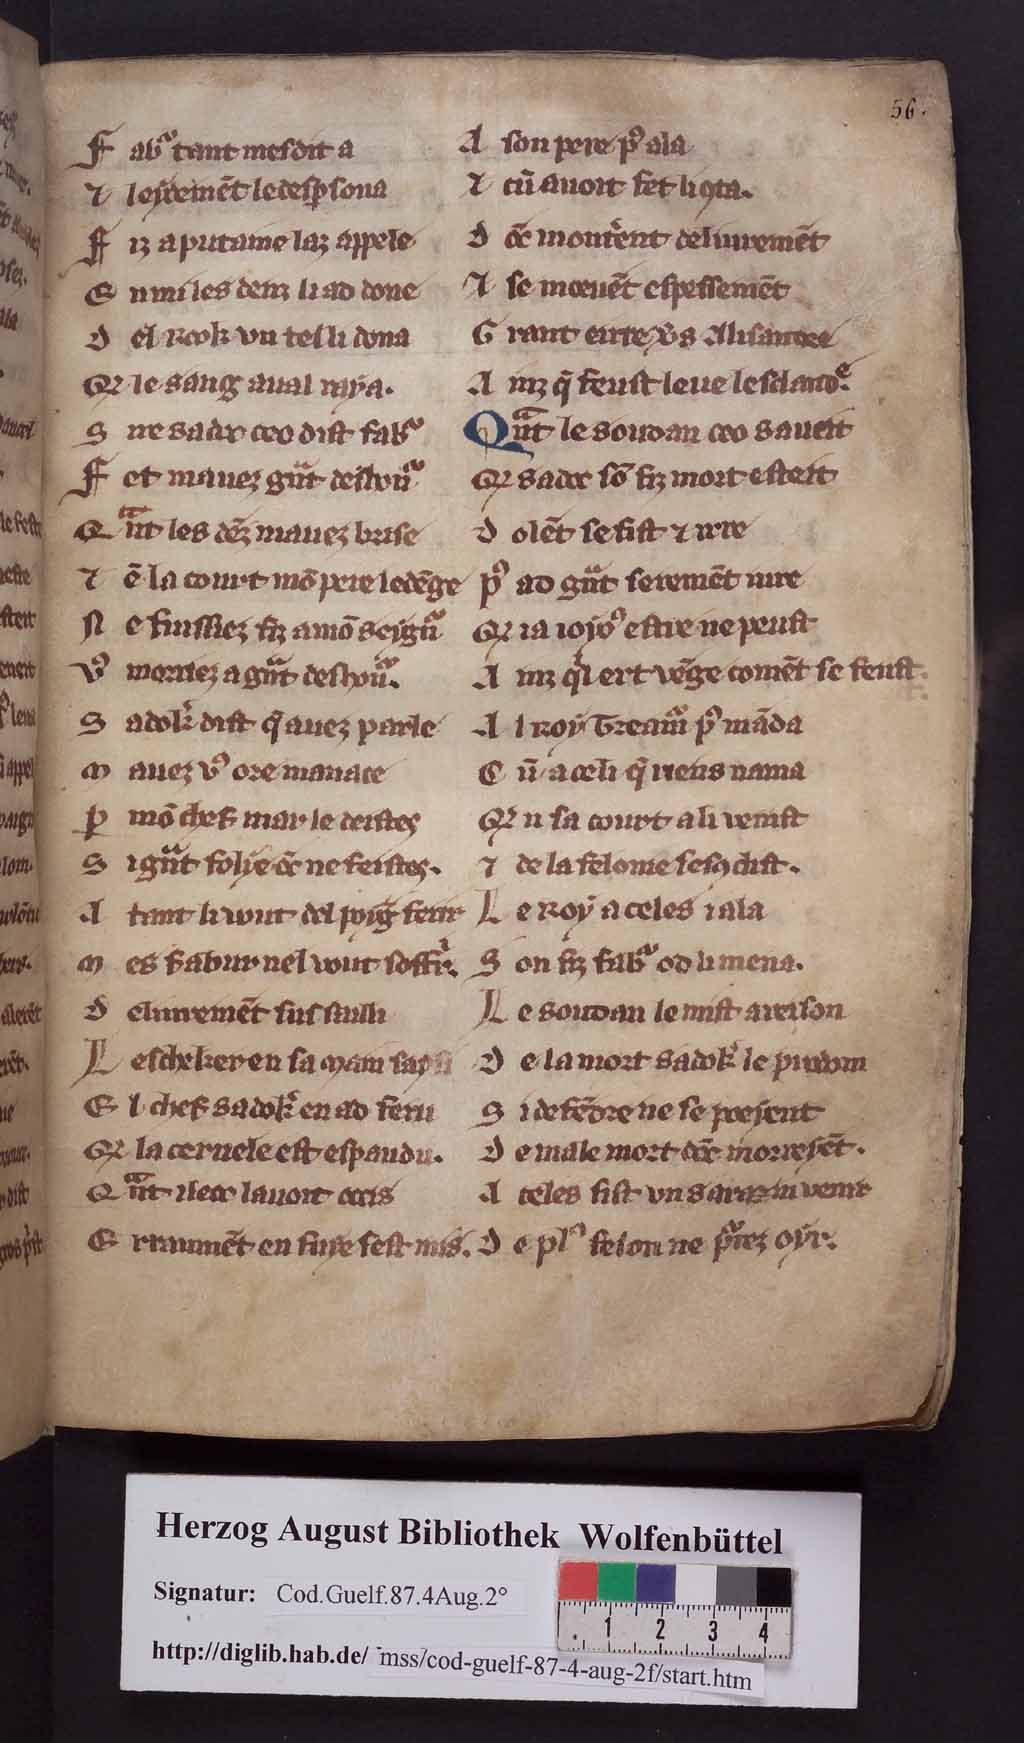 56.
F abᵘ tant mesdit a
⁊ leydemēt le despsona
F iz a putaine laz appele
E nmi les denz li ad done
D el Rook vn tel li dona
Q̄ le sang aual raya.
S ire sadoc ceo dist fabᵘ
F et mauez gᵃnt deshonᵘ
Q ᵃnt les dēz mauez brise
⁊ ē la court mō pere ledēge
N e fuissiez fiz a mō seygnᵘ
V⁹ morriez a gᵃnt deshonᵘ.
S adok dist q̄ auez parle
M auez v⁹ ore manace
P mō chef mar le deistes
S i gᵃnt folye vnc ne feistes.
A tant li vout del poig ferir
M es fabur nel vout soffrⁱ.
D eliuremēt sus sailli
L escheker en sa main saysi
E l chef sadok en ad feru
Q̄ la ceruele est espandu.
Q ᵃnt ilecc lauoit occis
E rraumēt en fuye sest mis.
A son pere p⁹ ala
⁊ cū auoit fet li 9ta.
D ōc monterent deliuremēt
⁊ se moeuēt espessemēt
G rant eirre v̄s Alisandre
A inz q̄ feust leue lesclandᵉ.
Qᵃnt le soudan ceo saueit
Q̄ sadoc sō fiz mort esteit
D olēt se fist ⁊ irre
P⁹ ad gᵃnt seremēt iure
Q̄ ia ioyo⁹ estre ne peust
A inz qⁱl ert vēge comēt se feust.
A l Roy Treamᵘ p⁹ māda
C ū a celi q̄ riens nama
Q̄ n sa court a li venist
⁊ de la felonie sescōdist.
L e Roy a celes i ala
S on fiz fabᵘ od li mena.
L e soudan le mist a reison
D e la mort sadok le prudom
S i defēdre ne se poeyent
D e male mort dōc morreyēt.
A celes fist vn sarazin venir
D e pl⁹ felon ne pᵘrez oyr.
Herzog August Bibliothek Wolfenbüttel
Signatur: Cod.Guelf.87.4Aug.2°
http://diglib.hab.de/ mss/cod-guelf-87-4-aug-2f/start.htm
1 2 3 4